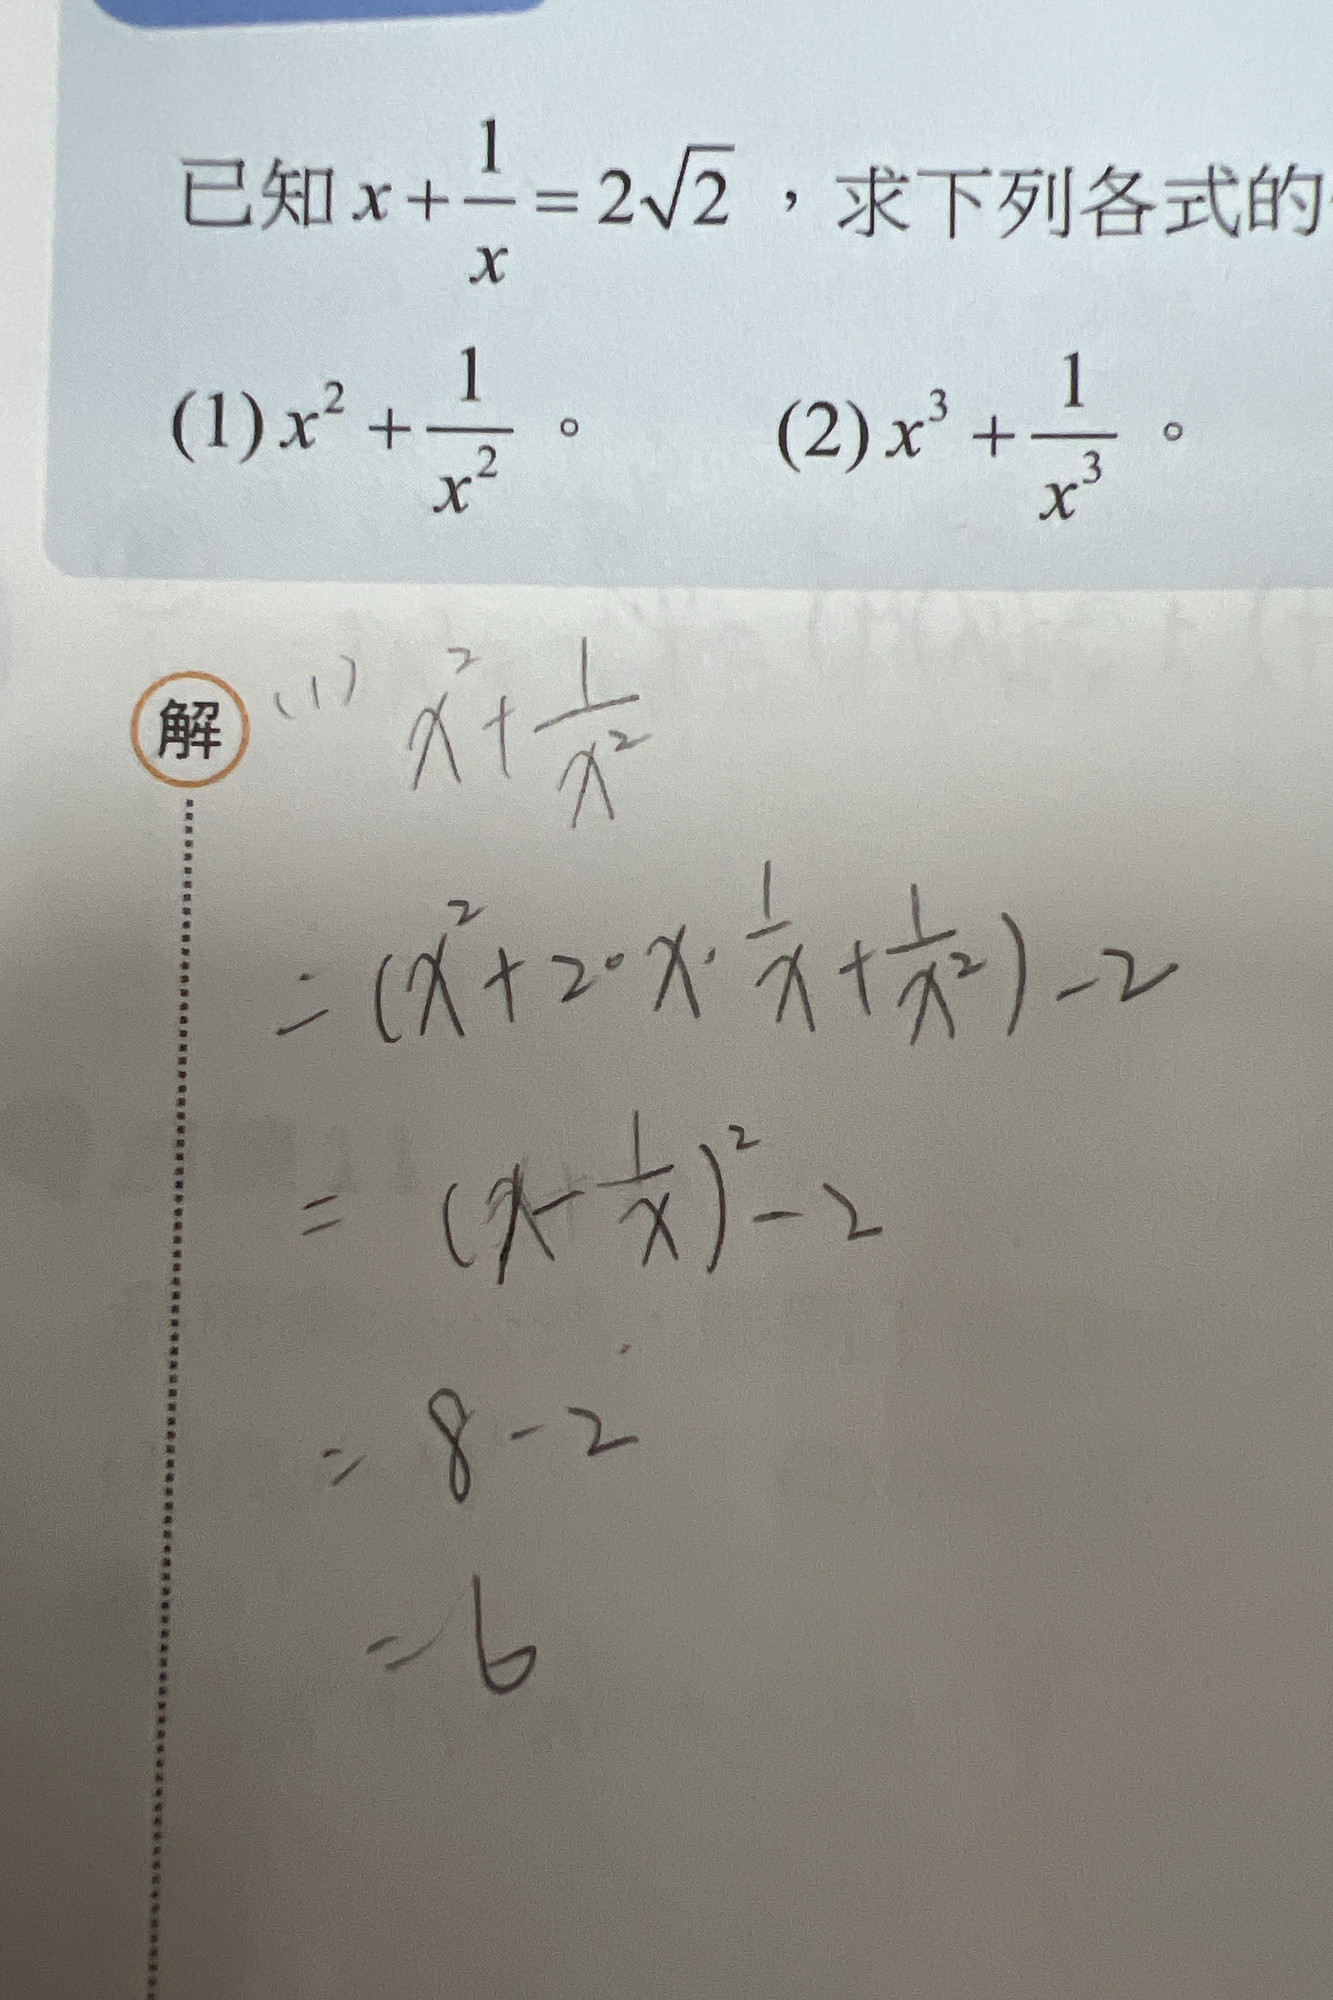 已知 x + 1/x = 2√2 ,求下列各式的
(1) x² + 1/x² 。 (2) x³ + 1/x³ 。
解 (1) x² + 1/x²
= (x² + 2·x·1/x + 1/x²) - 2
= (x - 1/x)² - 2
= 8 - 2
= 6